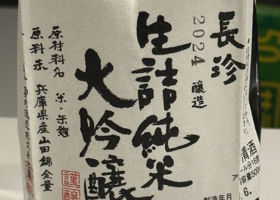 長珍
2024 醸造
生詰純米
大吟醸
謹醸
原材料名 米・米麹
原料米 兵庫県産山田錦全量
清酒
製造年月